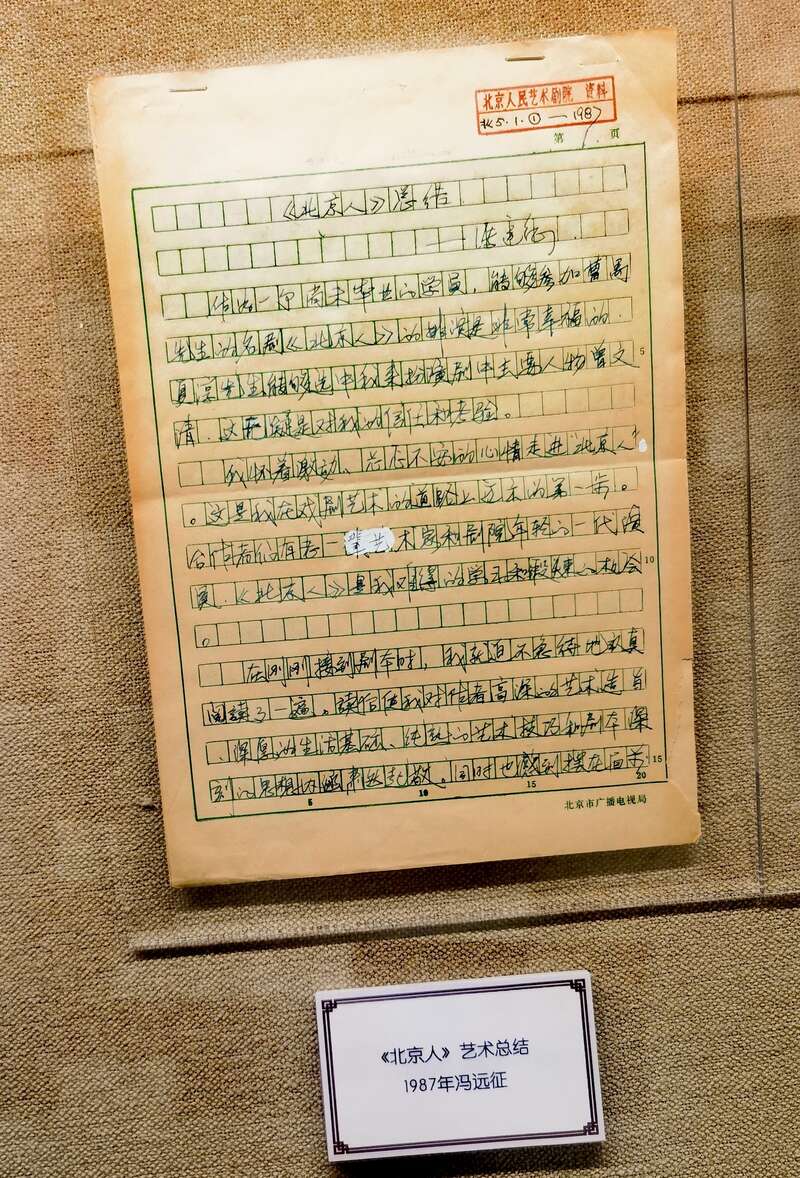 北京人民艺术剧院 资料
北5.1.①—1987
第 1 页
《北京人》总结
——冯远征
作为一个尚未毕业的学员,能够参加曹禺
先生的名剧《北京人》的排演是非常幸福的.
夏淳先生能够选中我来扮演剧中主要人物曾文
清.这无疑是对我的信任和考验。
我怀着激动、忐忑不安的心情走进"北京人"
。这是我在戏剧艺术的道路上迈出的第一步。
合作者们有老一辈艺术家和剧院年轻的一代演
员.《北京人》是我难得的学习和锻炼的机会
。
在刚刚接到剧本时,我就迫不急待地认真
阅读了一遍。读后使我对作者高深的艺术造旨
、深厚的生活基础、纯熟的艺术技巧和剧本深
刻的思想内涵肃然起敬。同时也感到摆在面前
5
10
15
5 10 15 20
北京市广播电视局
《北京人》艺术总结
1987年冯远征